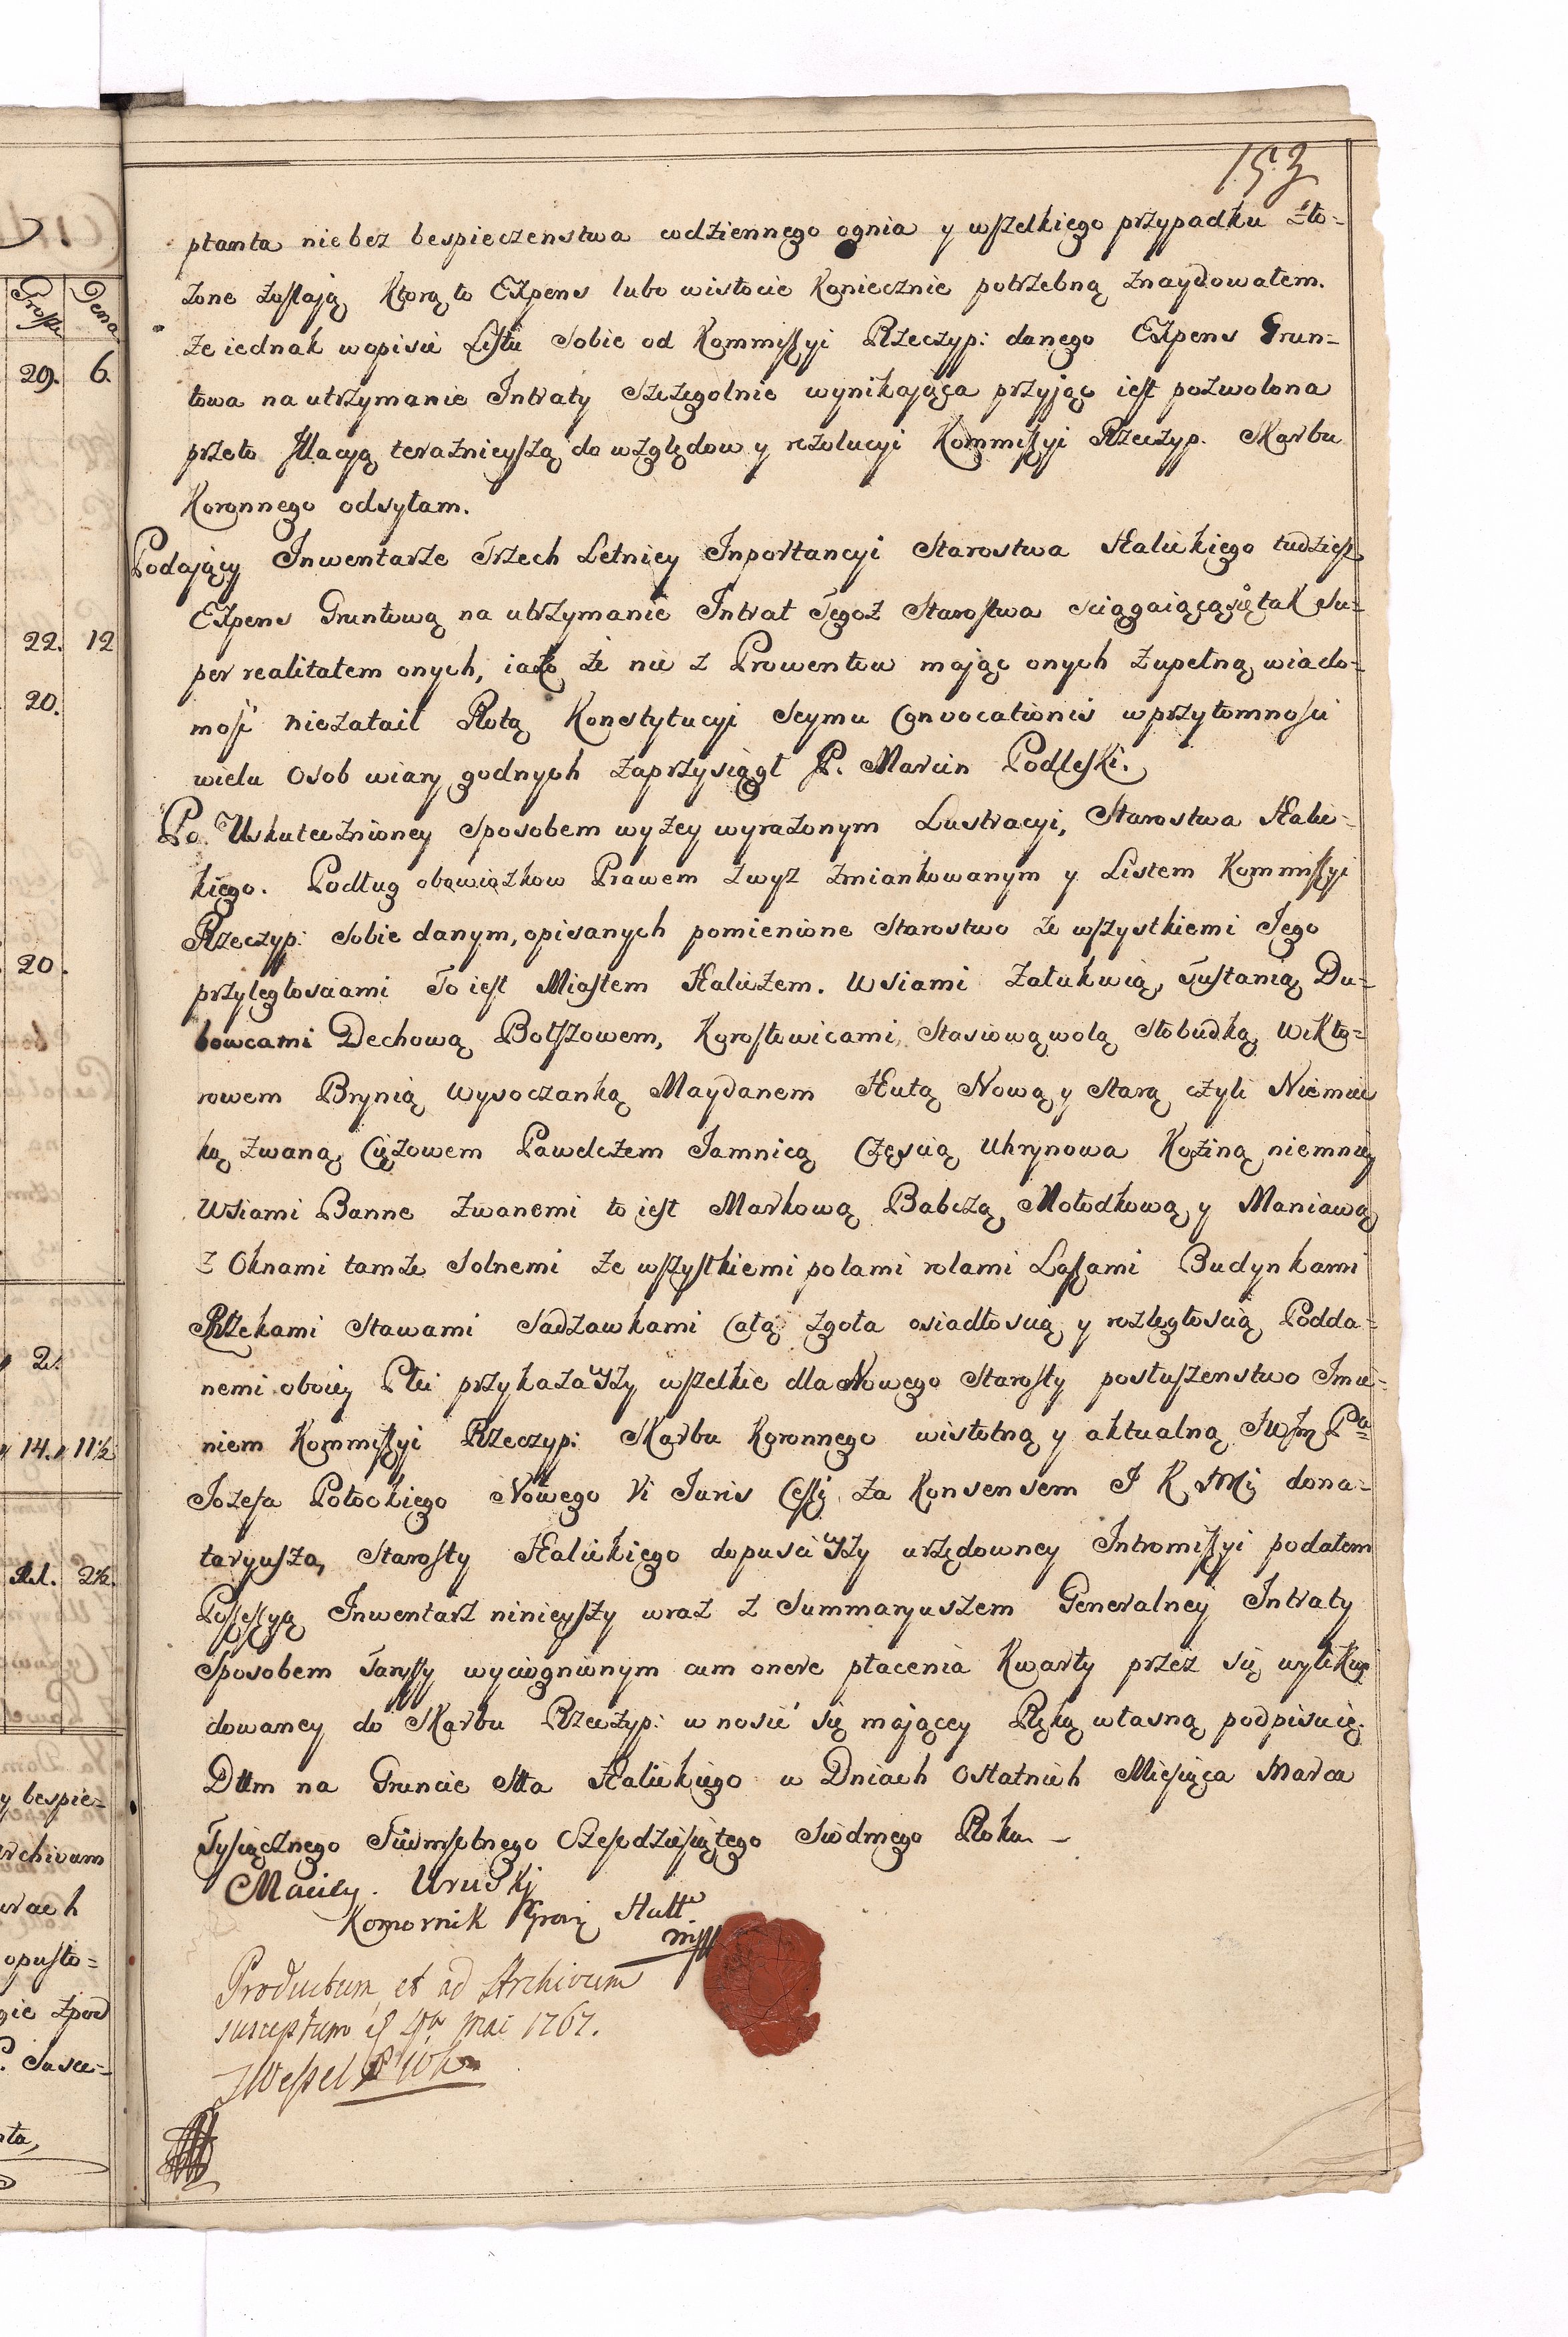 153
ptanta nie bez bespieczenstwa codziennego ognia y wszelkiego przypadku zło-
zone zostają Ktorą to Expens lubo wistocie Koniecznie potrzebną znaydowałem.
ze iednak w opisie Listu Sobie od Kommissyi Rzeczyp: danego Expens Grun-
towa na utrzymanie Intraty szczegolnie wynikająca przyjąc iest pozwolona
przeto Illacyą teraznieyszą do względow y rezolucyi Kommissyi Rzeczyp. Skarbu
Koronnego odsyłam.
Podający Inwentarze Trzech Letniey Inportancyi Starostwa Halickiego tudziesz
Expens Gruntową na utrzymanie Intrat Tegoz Starostwa sciągaiącą się tak Su-
per realitatem onych, iako ze nic z Prowentow maiąc onych zupełną wiado-
mosc niezataił Rotą Konstytucyi Seymu Convocationis w przytomnosci
wielu Osob wiary godnych zaprzysiągł P. Marcin Podleski.
Po Uskutecznioney sposobem wyzey wyrazonym Lustracyi, Starostwa Halic-
kiego. Podług obowiązkow Prawem zwyz zmiankowanym y Listem Kommissyi
Rzeczyp: Sobie danym, opisanych pomienione Starostwo ze wszystkiemi Jego
przyległosciami To iest Miastem Haliczem. Wsiami Załukwią, Tustanią, Du-
bowcami Dechową Bołszowem, Korostowicami, Stasiową wolą Słobudką, Wikto-
rowem Brynią Wysoczanką Maydanem Hutą Nową y Starą czyli Niemiec
ką zwaną, Ciązowem Pawelczem Jamnicą Częscią Uhrynowa Koziną niemniey
Wsiami Banne zwanemi to iest Markową Babczą, Mołodkową y Maniawą
z Oknami tamze Solnemi ze wszystkiemi polami rolami Lasami Budynkami
Rzekami Stawami Sadzawkami Całą zgoła osiadłoscią y rozległoscią Podda-
nemi oboiey Płci przykazawszy wszelkie dla Nowego Starosty posłuszenstwo Imie-
niem Kommissyi Rzeczyp: Skarbu Koronnego wistotną y aktualną JWJm Pa
Jozefa Potockiego Nowego Vi Juris Cessi za Konsensem J K Mci dona-
taryusza, Starosty Halickiego dopusciwszy urzędowney Intromissyi podałem
Possessyą Inwentarz ninieyszy wraz z Summaryuszem Generalney Intraty
sposobem Taryffy wyciągnionym cum onere płacenia Kwarty przez się wylikwi
dowaney do Skarbu Rzeczyp: wnosic się maiącey Ręką własną podpisuię.
Dttm na Gruncie Stta Halickiego w Dniach Ostatnich Miesiąca Marca
Tysiącznego Siedmsetnego Szescdziesiątego Siodmego Roku –
Maciey Uruski
Komornik Halł
mpp
Productum et ad Archivum
susceptum Mai 1767.
Wessel